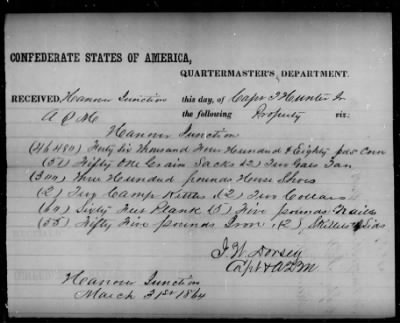 CONFEDERATE STATES OF AMERICA,
QUARTERMASTER'S DEPARTMENT.
RECEIVED, Hanover Junction this day, of Capt T Hunter Jr
A Q M the following Property viz:
Hanover Junction
(46480) Forty Six Thousand Four Hundred & Eighty pds Corn
(51) Fifty One Grain Sacks (2) Two Gals Tar
(300) Three Hundred pounds Horse Shoes
(2) Two Camp Kettles (2) Two Collars
(64) Sixty Four Plank (5) Five pounds Nails
(55) Fifty Five pounds Iron (2) Skillets & Lids
J. W. Dorsey
Capt & AQM
Hanover Junction
March 31st 1864